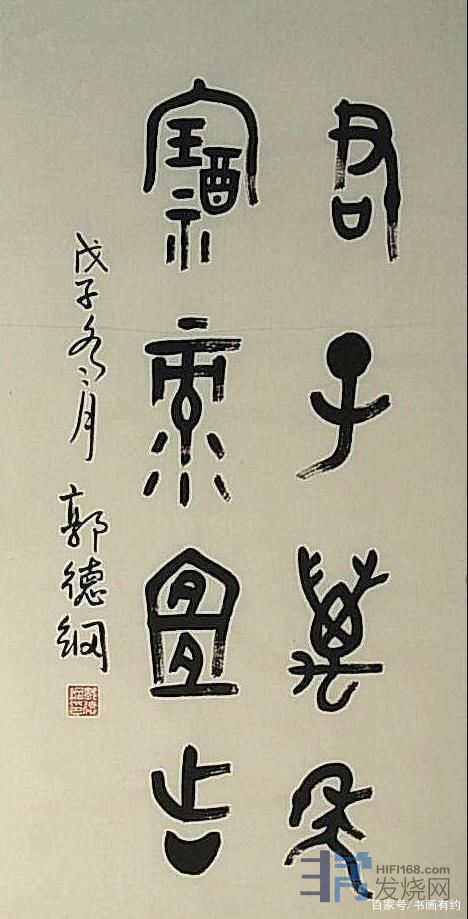 君子萬年
福祿宜之
戊子冬月 郭德綱
HIFI168.com
发烧网
百家号/书画有约